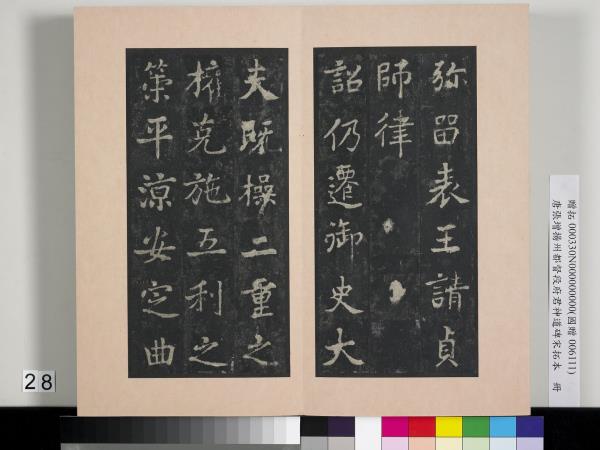 弥留表王請貞
師律
詔仍遷御史大
夫既操二重之
權克施五利之
策平涼安定曲
28
贈拓 000330N000000000(國贈 006111)
唐張增揚州都督段府君神道碑宋拓本 冊